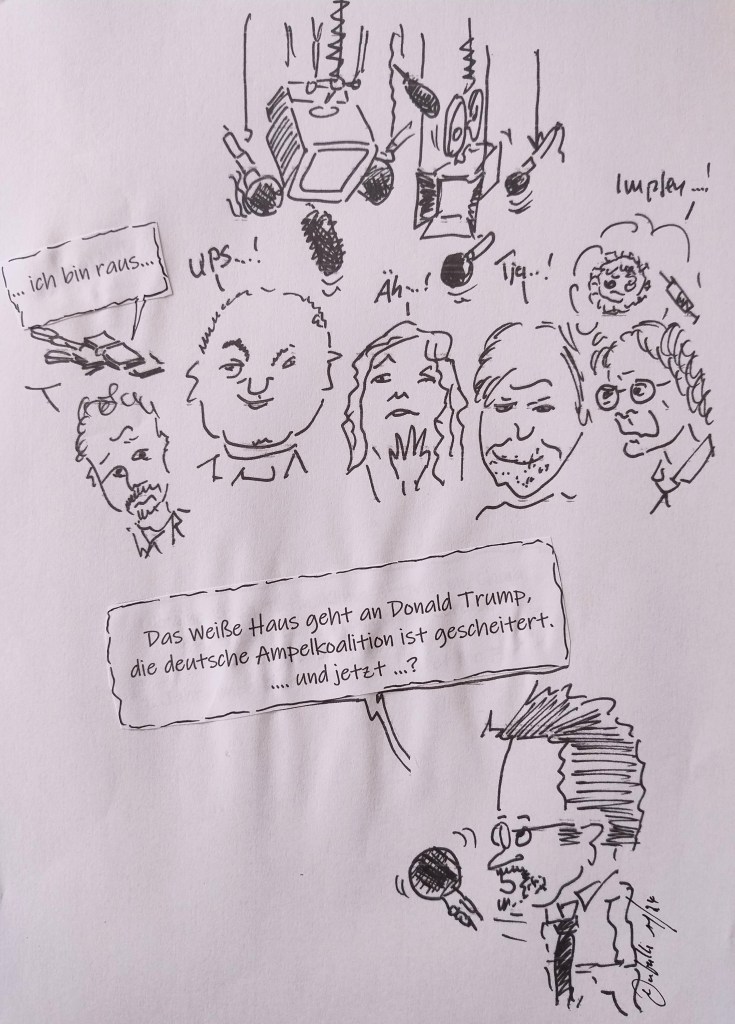 Impfen...!
... ich bin raus...
UPS...!
Äh...!
Tja...!
Das Weiße Haus geht an Donald Trump,
die deutsche Ampelkoalition ist gescheitert.
.... und jetzt ...?